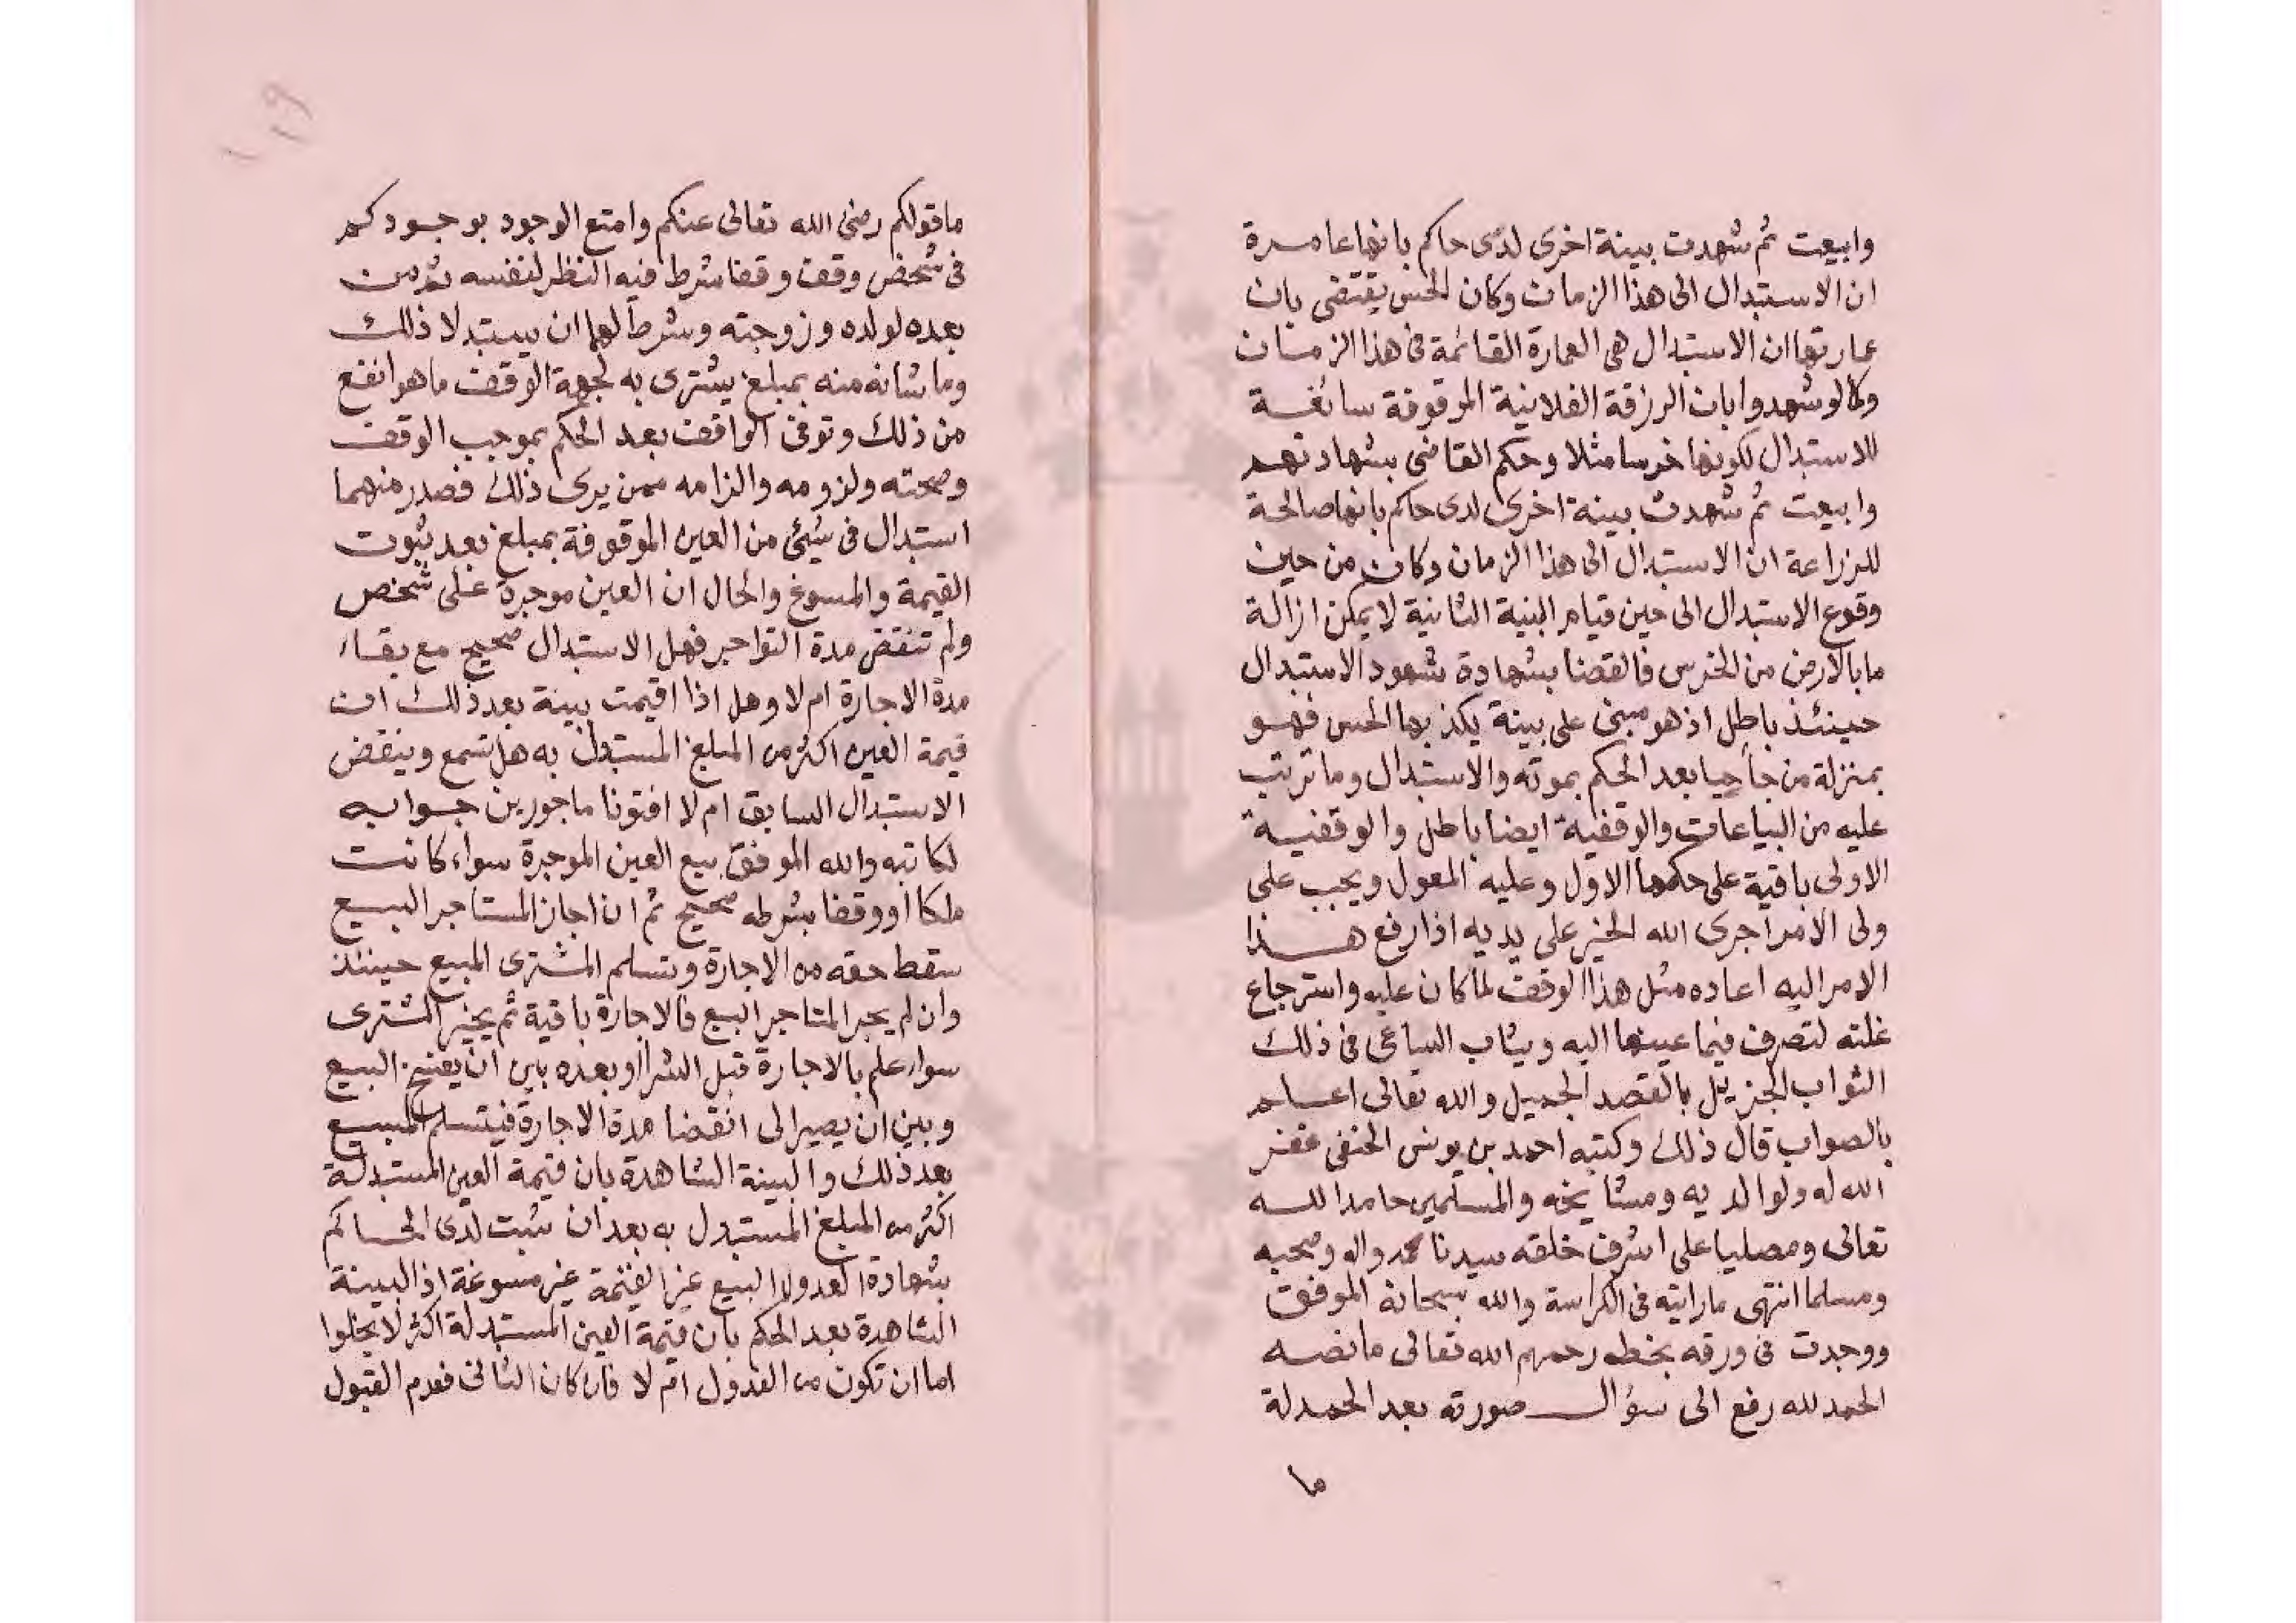 وابيعت ثم شهدت بينة اخرى لدى حاكم بانها عامرة
ان الاستبدال الى هذا الزمان وكان الحس يقتضى بان
عمارتها ان الاستبدال هى العمارة القائمة فى هذا الزمان
وكالو شهدوا بان الرزقة الفلانية الموقوفة سائغة
للاستبدال لكونها خرسا مثلا وحكم القاضى بشهادتهم
وابيعت ثم شهدت بينة اخرى لدى حاكم بانها صالحة
للزراعة ان الاستبدال الى هذا الزمان وكان من حين
وقوع الاستبدال الى حين قيام البنية الثانية لا يمكن ازالة
ما بالارض من الخرس فالقضا بشهادة شهود الاستبدال
حينئذ باطل اذ هو مبنى على بينة يكذبها الحس فهو
بمنزلة من جا حيا بعد الحكم بموته والاستبدال وما ترتب
عليه من البياعات والوقفية ايضا باطل والوقفية
الاولى باقية على حكمها الاول وعليه المعول ويجب على
ولى الامر اجرى الله الخير على يديه اذا رفع هذا
الامر اليه اعاده مثل هذا الوقف لما كان عليه واسترجاع
غلته لتصرف فيما عينها اليه ويثاب الساعى فى ذلك
الثواب الجزيل بالقصد الجميل والله تعالى اعلم
بالصواب قال ذلك وكتبه احمد بن يونس الحنفى غفر
الله له ولوالديه ومشايخه والمسلمين حامدا لله
تعالى ومصليا على اشرف خلقه سيدنا محمد واله وصحبه
ومسلما انتهى ما رايته فى الكراسة والله سبحانه الموفق
ووجدت فى ورقه بخطه رحمهم الله تعالى ما نصه
الحمد لله رفع الى سؤال صورته بعد الحمدلة
ما
١١٩
ما قولكم رضى الله تعالى عنكم وامتع الوجود بوجودكم
فى شخص وقف وقفا شرط فيه النظر لنفسه ثم من
بعده لولده وزوجته وشرط لهما ان يستبدلا ذلك
وما شانه منه بمبلغ يشترى به لجهة الوقف ما هو انفع
من ذلك وتوفى الواقف بعد الحكم بموجب الوقف
وصحته ولزومه والزامه ممن يرى ذلك فصدر منهما
استبدال فى شيئ من العين الموقوفة بمبلغ بعد ثبوت
القيمة والمسوغ والحال ان العين موجرة على شخص
ولم تنقض مدة التواجر فهل الاستبدال صحيح مع بقاء
مدة الاجارة ام لا وهل اذا اقيمت بينة بعد ذلك ان
قيمة العين اكثر من المبلغ المستبدل به هل تسمع وينقض
الاستبدال السابق ام لا افتونا ماجورين جوابه
لكاتبه والله الموفق بيع العين الموجرة سواء كانت
ملكا او وقفا بشرطه صحيح ثم ان اجاز المستاجر البيع
سقط حقه من الاجارة وتسلم المشترى المبيع حينئذ
وان لم يجز المتاجر البيع فالاجارة باقية ثم يخير المشترى
سواء علم بالاجارة قبل الشرا او بعده بين ان يفسخ البيع
وبين ان يصير الى انقضا مدة الاجارة فيتسلم المبيع
بعد ذلك والبينة الشاهدة بان قيمة العين المستبدلة
اكثر من المبلغ المستبدل به بعد ان ثبت لدى الحاكم
بشهادة العدول البيع غير مسوغة اذ البينة
الشاهدة بعد الحكم بان قيمة العين المستبدلة اكثر لا يخلوا
اما ان تكون من العدول ام لا فان كان الثانى فعدم القبول